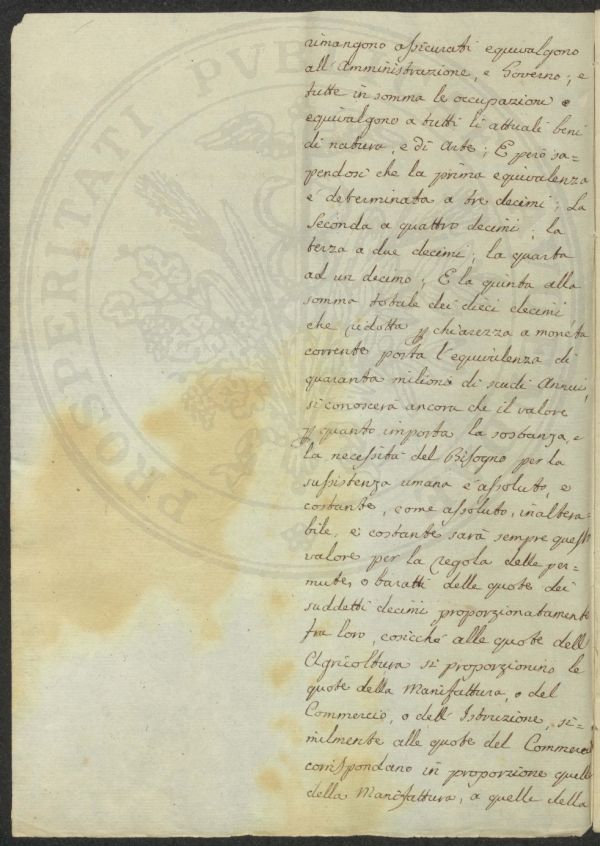 rimangono assicurati equivalgono
all'Amministrazione, e Governo; e
tutte in somma le occupazioni e
equivalgono a tutti li attuali beni
di natura, e di Arte; E però sa=
pendosi che la prima equivalenza
e' determinata a tre decimi; La
seconda a quattro decimi; la
terza a due decimi; la quarta
ad un decimo; E la quinta alla
somma totale dei dieci decimi
che ridotta p chiarezza a moneta
corrente porta l'equivalenza di
quaranta milioni di scudi Annui,
si conoscerà ancora che il valore
p quanto importa la sostanza, e
la necessità del Bisogno per la
sussistenza umana e' assoluto, e
costante, come assoluto, inaltera=
bile, e costante sarà sempre questo
valore per la regola delle per=
mute, o baratti delle quote dei
suddetti decimi proporzionatamente
fra loro, cosicché alle quote dell'
Agricoltura si proporzionino le
quote della Manifattura, o del
Commercio, o dell'Istruzione, si=
milmente alle quote del Commercio
corrispondano in proporzione quelle
della Manifattura, a quelle della
PROSPERITATI PVB